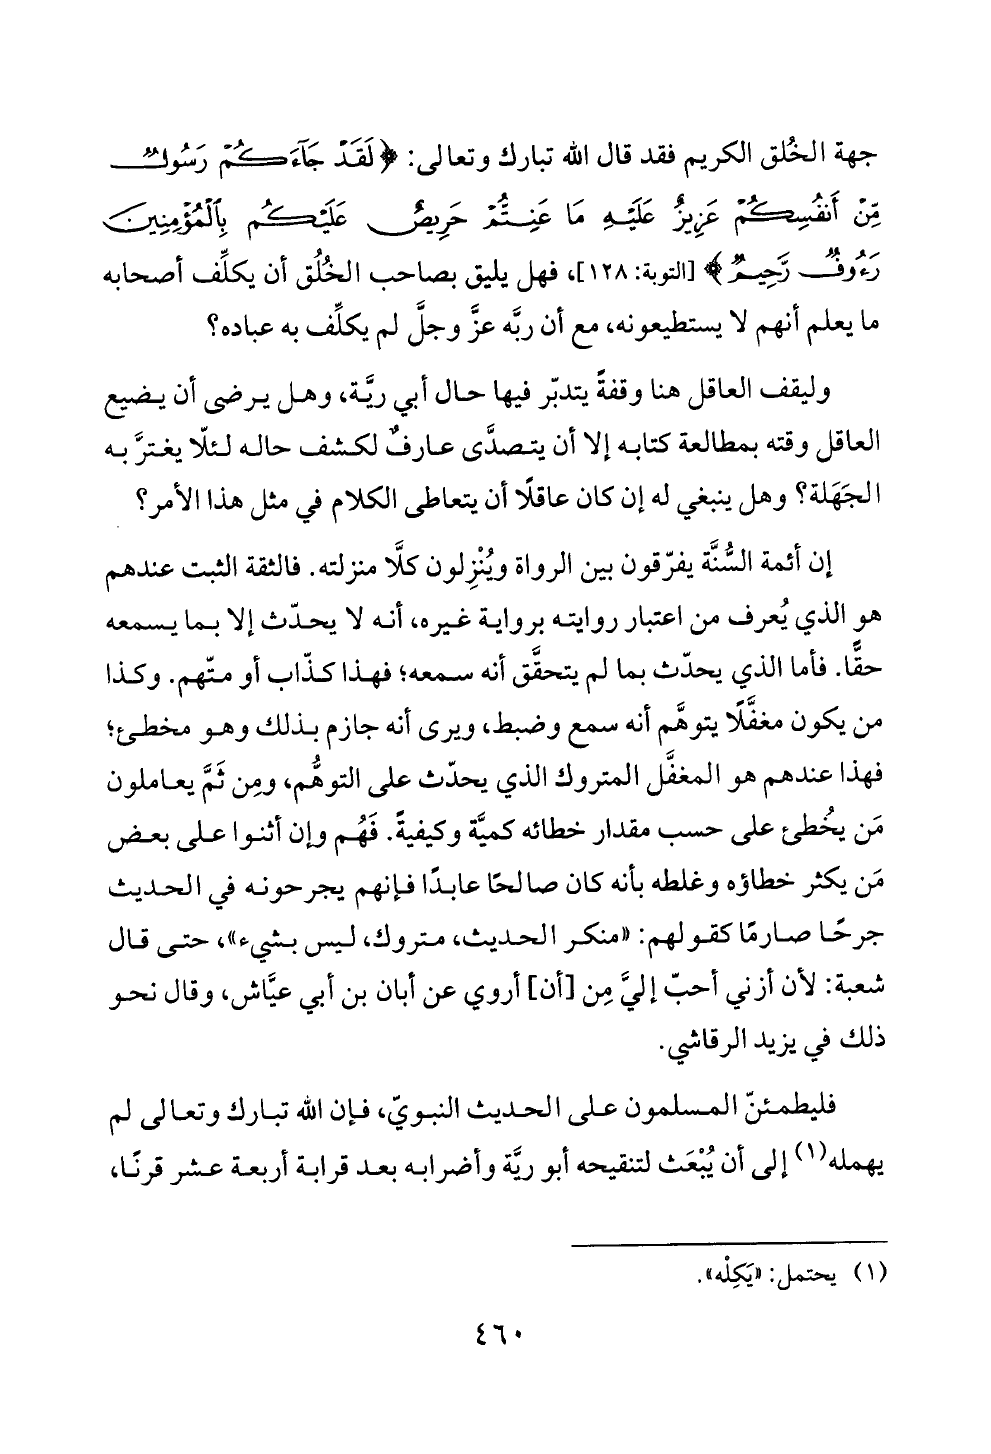 جهة الخُلق الكريم فقد قال الله تبارك وتعالى: ﴿لَقَدْ جَآءَكُمْ رَسُولٌ
مِّنْ أَنفُسِكُمْ عَزِيزٌ عَلَيْهِ مَا عَنِتُّمْ حَرِيصٌ عَلَيْكُم بِٱلْمُؤْمِنِينَ
رَءُوفٌ رَّحِيمٌ﴾ [التوبة: ١٢٨]، فهل يليق بصاحب الخُلُق أن يكلِّف أصحابه
ما يعلم أنهم لا يستطيعونه، مع أن ربَّه عزَّ وجلَّ لم يكلِّف به عباده؟
وليقف العاقل هنا وقفةً يتدبّر فيها حال أبي ريَّة، وهل يرضى أن يضيع
العاقل وقته بمطالعة كتابه إلا أن يتصدَّى عارفٌ لكشف حاله لئلّا يغترَّ به
الجَهَلة؟ وهل ينبغي له إن كان عاقلًا أن يتعاطى الكلام في مثل هذا الأمر؟
إن أئمة السُّنَّة يفرّقون بين الرواة ويُنْزِلون كلًّا منزلته. فالثقة الثبت عندهم
هو الذي يُعرف من اعتبار روايته برواية غيره، أنه لا يحدّث إلا بما يسمعه
حقًّا. فأما الذي يحدّث بما لم يتحقَّق أنه سمعه؛ فهذا كذّاب أو متّهم. وكذا
من يكون مغفَّلًا يتوهَّم أنه سمع وضبط، ويرى أنه جازم بذلك وهو مخطئ؛
فهذا عندهم هو المغفَّل المتروك الذي يحدّث على التوهُّم، ومِن ثَمَّ يعاملون
مَن يُخطئ على حسب مقدار خطائه كميَّة وكيفيةً. فَهُم وإن أثنوا على بعض
مَن يكثر خطاؤه وغلطه بأنه كان صالحًا عابدًا فإنهم يجرحونه في الحديث
جرحًا صارمًا كقولهم: «منكر الحديث، متروك، ليس بشيء»، حتى قال
شعبة: لأن أزني أحبّ إليَّ مِن [أن] أروي عن أبان بن أبي عيَّاش، وقال نحو
ذلك في يزيد الرقاشي.
فليطمئنّ المسلمون على الحديث النبويّ، فإن الله تبارك وتعالى لم
يهمله(١) إلى أن يُبْعَث لتنقيحه أبو ريَّة وأضرابه بعد قرابة أربعة عشر قرنًا،
(١) يحتمل: «يَكِلْه».
٤٦٠